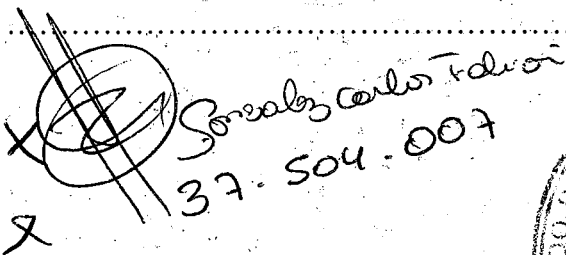 Gonzalez carlos Fabian
37.504.007